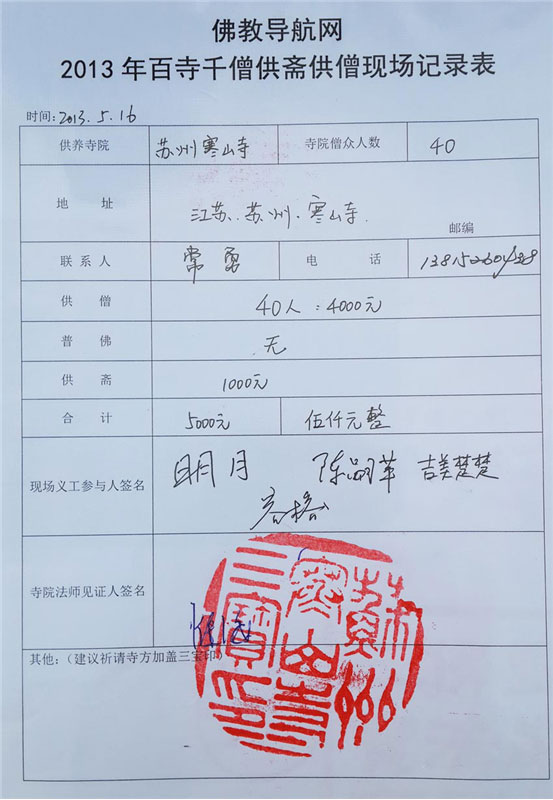 佛教导航网
2013年百寺千僧供斋供僧现场记录表
时间:2013.5.16
供养寺院 苏州寒山寺 寺院僧众人数 40
地 址 江苏.苏州.寒山寺. 邮编
联系人 常勇 电 话
供 僧 40人:4000元
普 佛 无
供 斋 1000元
合 计 5000元 伍仟元整
现场义工参与人签名 明月 吉美楚楚
寺院法师见证人签名
其他:(建议祈请寺方加盖三宝印)
蘇州
寒山寺
三寶印